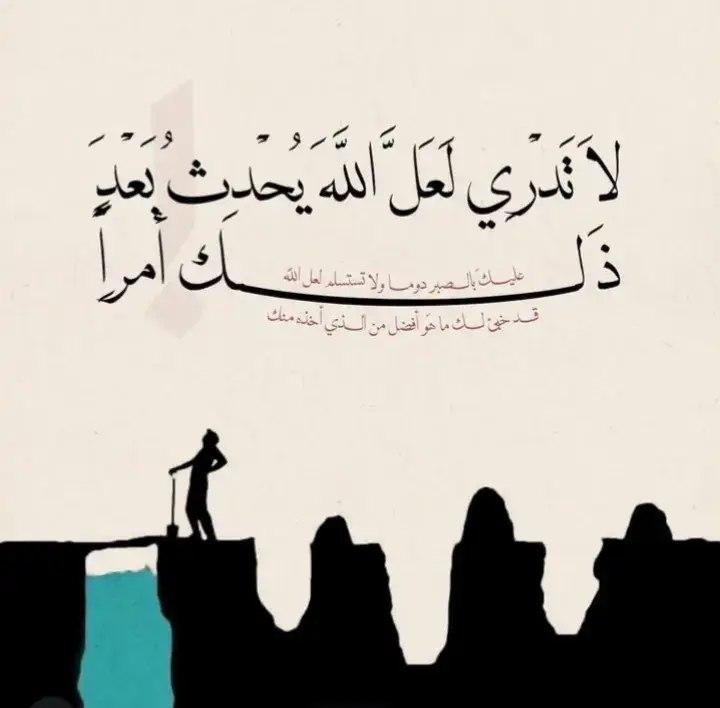 لاَ تَدْرِي لَعَلَّ اللَّهَ يُحْدِثُ بَعْدَ
ذَلِكَ أَمراً
عليك بالصبر دوما ولا تستسلم لعل الله
قد خبئ لك ما هو أفضل من الذي أخذه منك